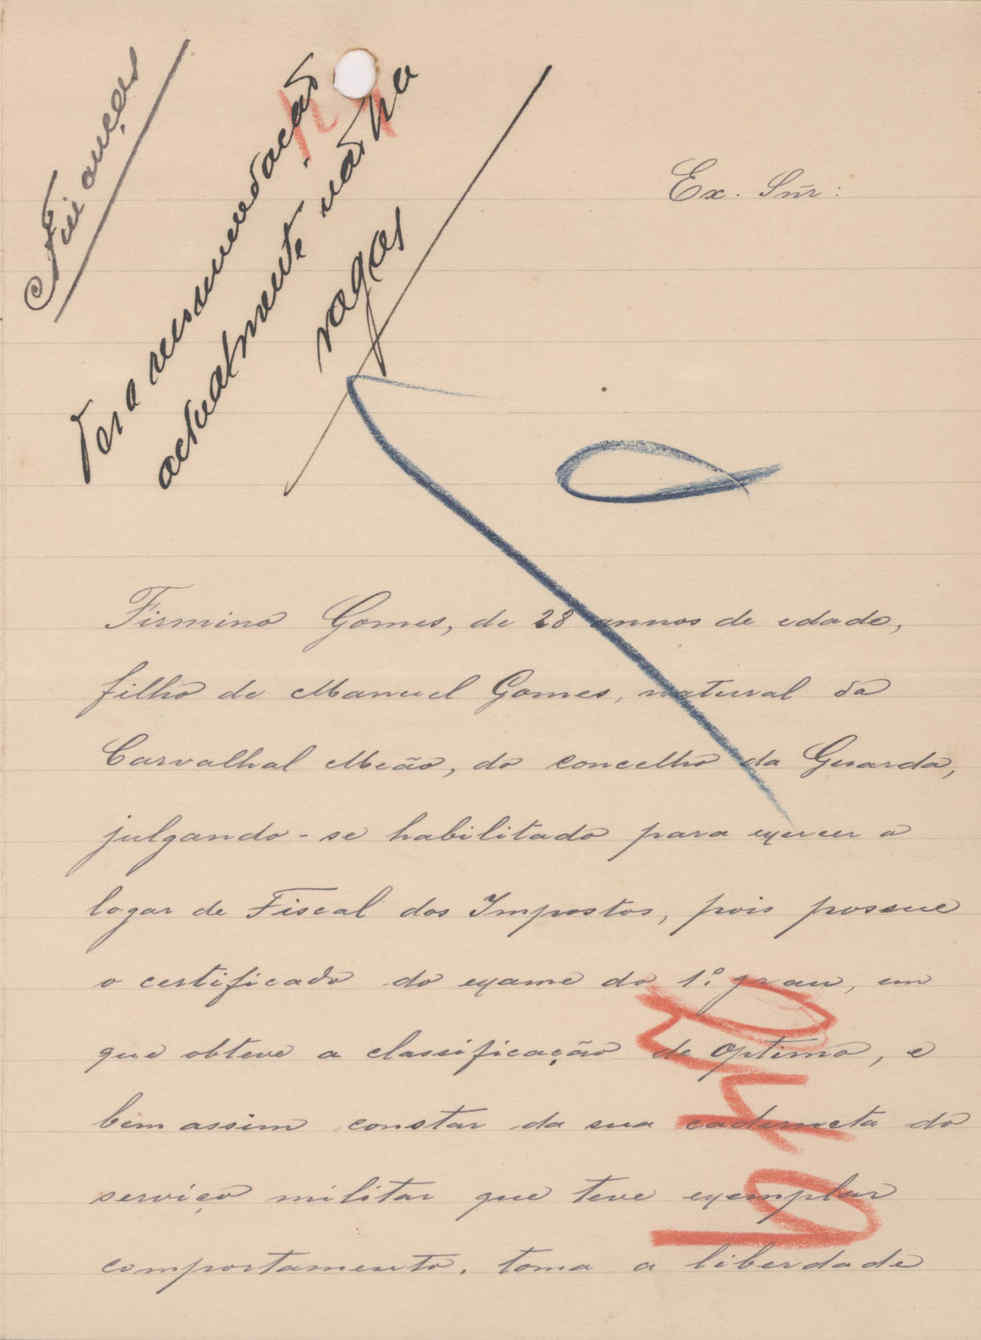 Finanças
Tem a recommendação
actualmente não ha
vagas
Ex. Snr:
Firmino Gomes, de 28 annos de edade,
filho de Manuel Gomes, natural da
Carvalhal Meão, do concelho da Guarda,
julgando-se habilitado para exercer o
logar de Fiscal dos Impostos, pois possue
o certificado do exame do 1.º grau, em
que obteve a classificação de optimo, e
bem assim constar da sua caderneta do
serviço militar que teve exemplar
comportamento, toma a liberdade